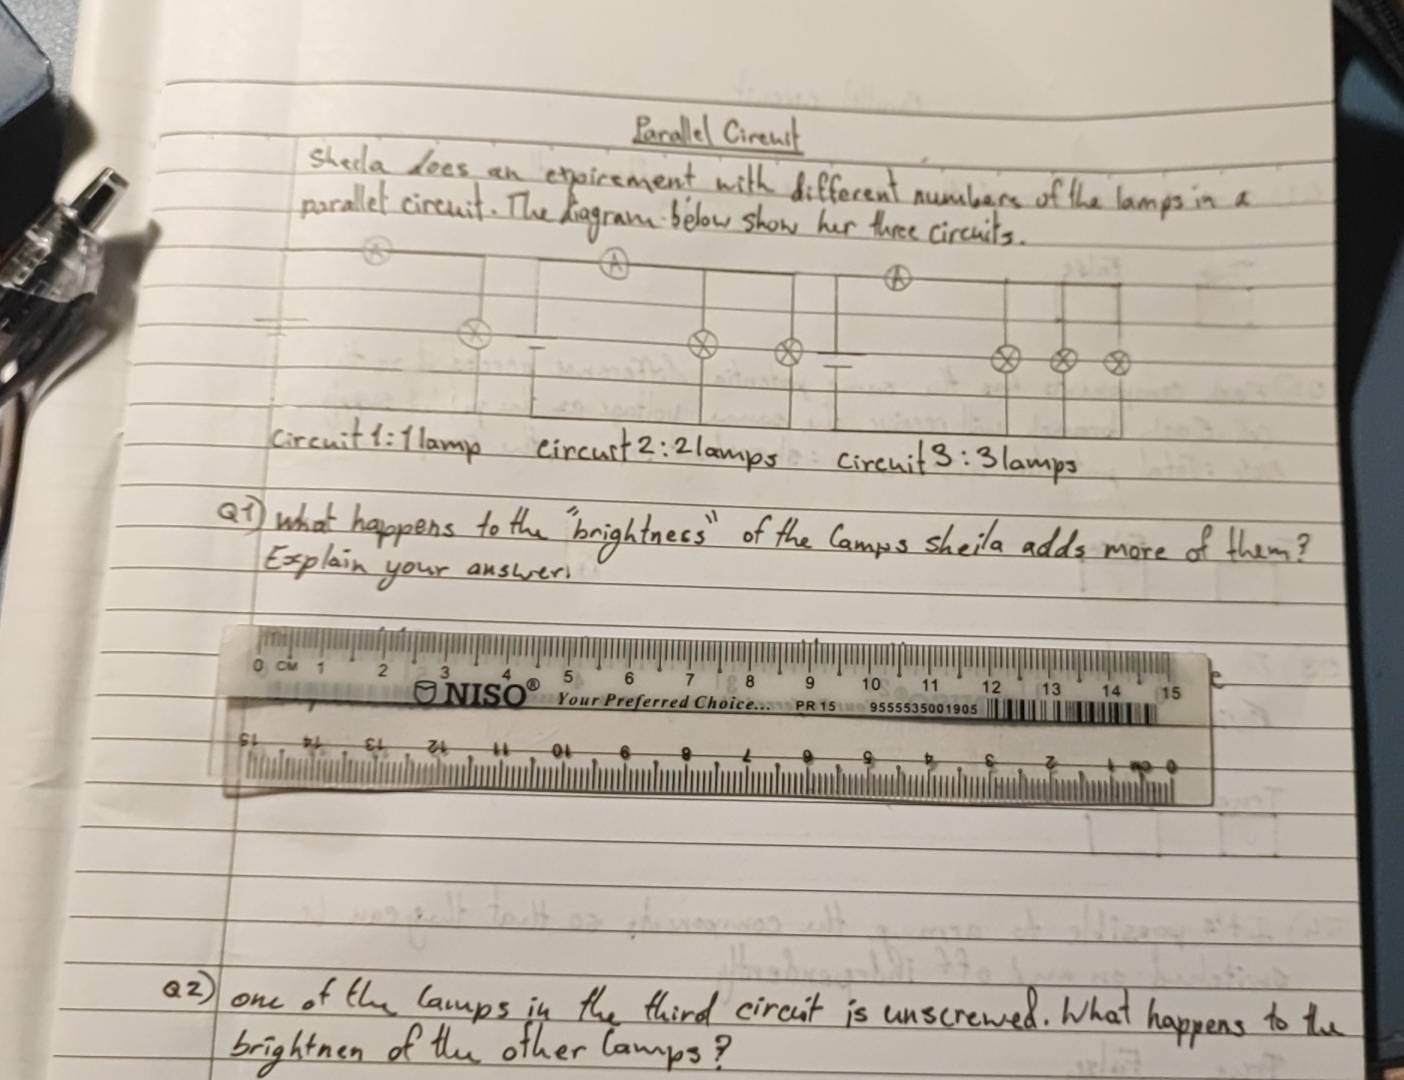 Parallel Circuit
Sheila does an expirement with different numbers of the lamps in a
parallel circuit. The diagram below show her three circuits.
A
A
A
circuit 1: 1 lamp circuit 2: 2 lamps circuit 3: 3 lamps
Q1) what happens to the "brightness" of the lamps sheila adds more of them?
Explain your answer.
0 CM 1 2 3 4 5 6 7 8 9 10 11 12 13 14 15
NISO® Your Preferred Choice... PR 15 9555535001905
15 14 13 12 11 10 9 8 7 6 5 4 3 2 1 cm 0
Q2) one of the lamps in the third circuit is unscrewed. What happens to the
brightnen of the other lamps?